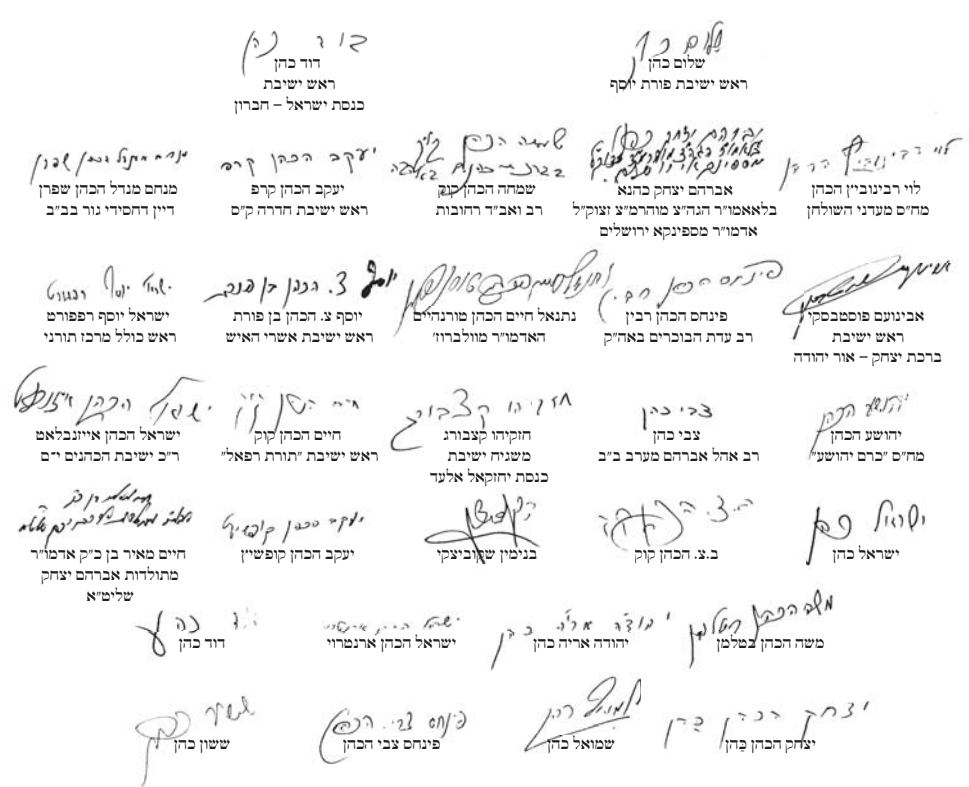 שלום כהן
ראש ישיבת פורת יוסף
דוד כהן
ראש ישיבת
כנסת ישראל – חברון
לוי רבינוביץ הכהן
מח״ס מעדני השולחן
אברהם יצחק כהנא
בלאאמו״ר הגה״צ מוהרמ״צ זצוק״ל
אדמו״ר מספינקא ירושלים
שמחה הכהן קוק
רב ואב״ד רחובות
יעקב הכהן קרפ
ראש ישיבת חדרה ק״ס
מנחם מנדל הכהן שפרן
דיין דחסידי גור בב״ב
אבינועם פוסטבסקי
ראש ישיבת
ברכת יצחק – אור יהודה
פינחס הכהן רבין
רב עדת הבוכרים באה״ק
נתנאל חיים הכהן טורנהיים
האדמו״ר מוולברוז׳
יוסף צ. הכהן בן פורת
ראש ישיבת אשרי האיש
ישראל יוסף רפפורט
ראש כולל מרכז תורני
יהושע הכהן
מח״ס ״כרם יהושע״
צבי כהן
רב אהל אברהם מערב ב״ב
חזקיהו קצבורג
משגיח ישיבת
כנסת יחזקאל אלעד
חיים הכהן קוק
ראש ישיבת ״תורת רפאל״
ישראל הכהן אייזנבלאט
ר״כ ישיבת הכהנים י־ם
ישראל כהן
ב.צ. הכהן קוק
בנימין שקוביצקי
יעקב הכהן קופשיץ
חיים מאיר בן כ״ק אדמו״ר
מתולדות אברהם יצחק
שליט״א
משה הכהן בטלמן
יהודה אריה כהן
ישראל הכהן ארנטרוי
דוד כהן
יצחק הכהן כהן
שמואל כהן
פינחס צבי הכהן
ששון כהן